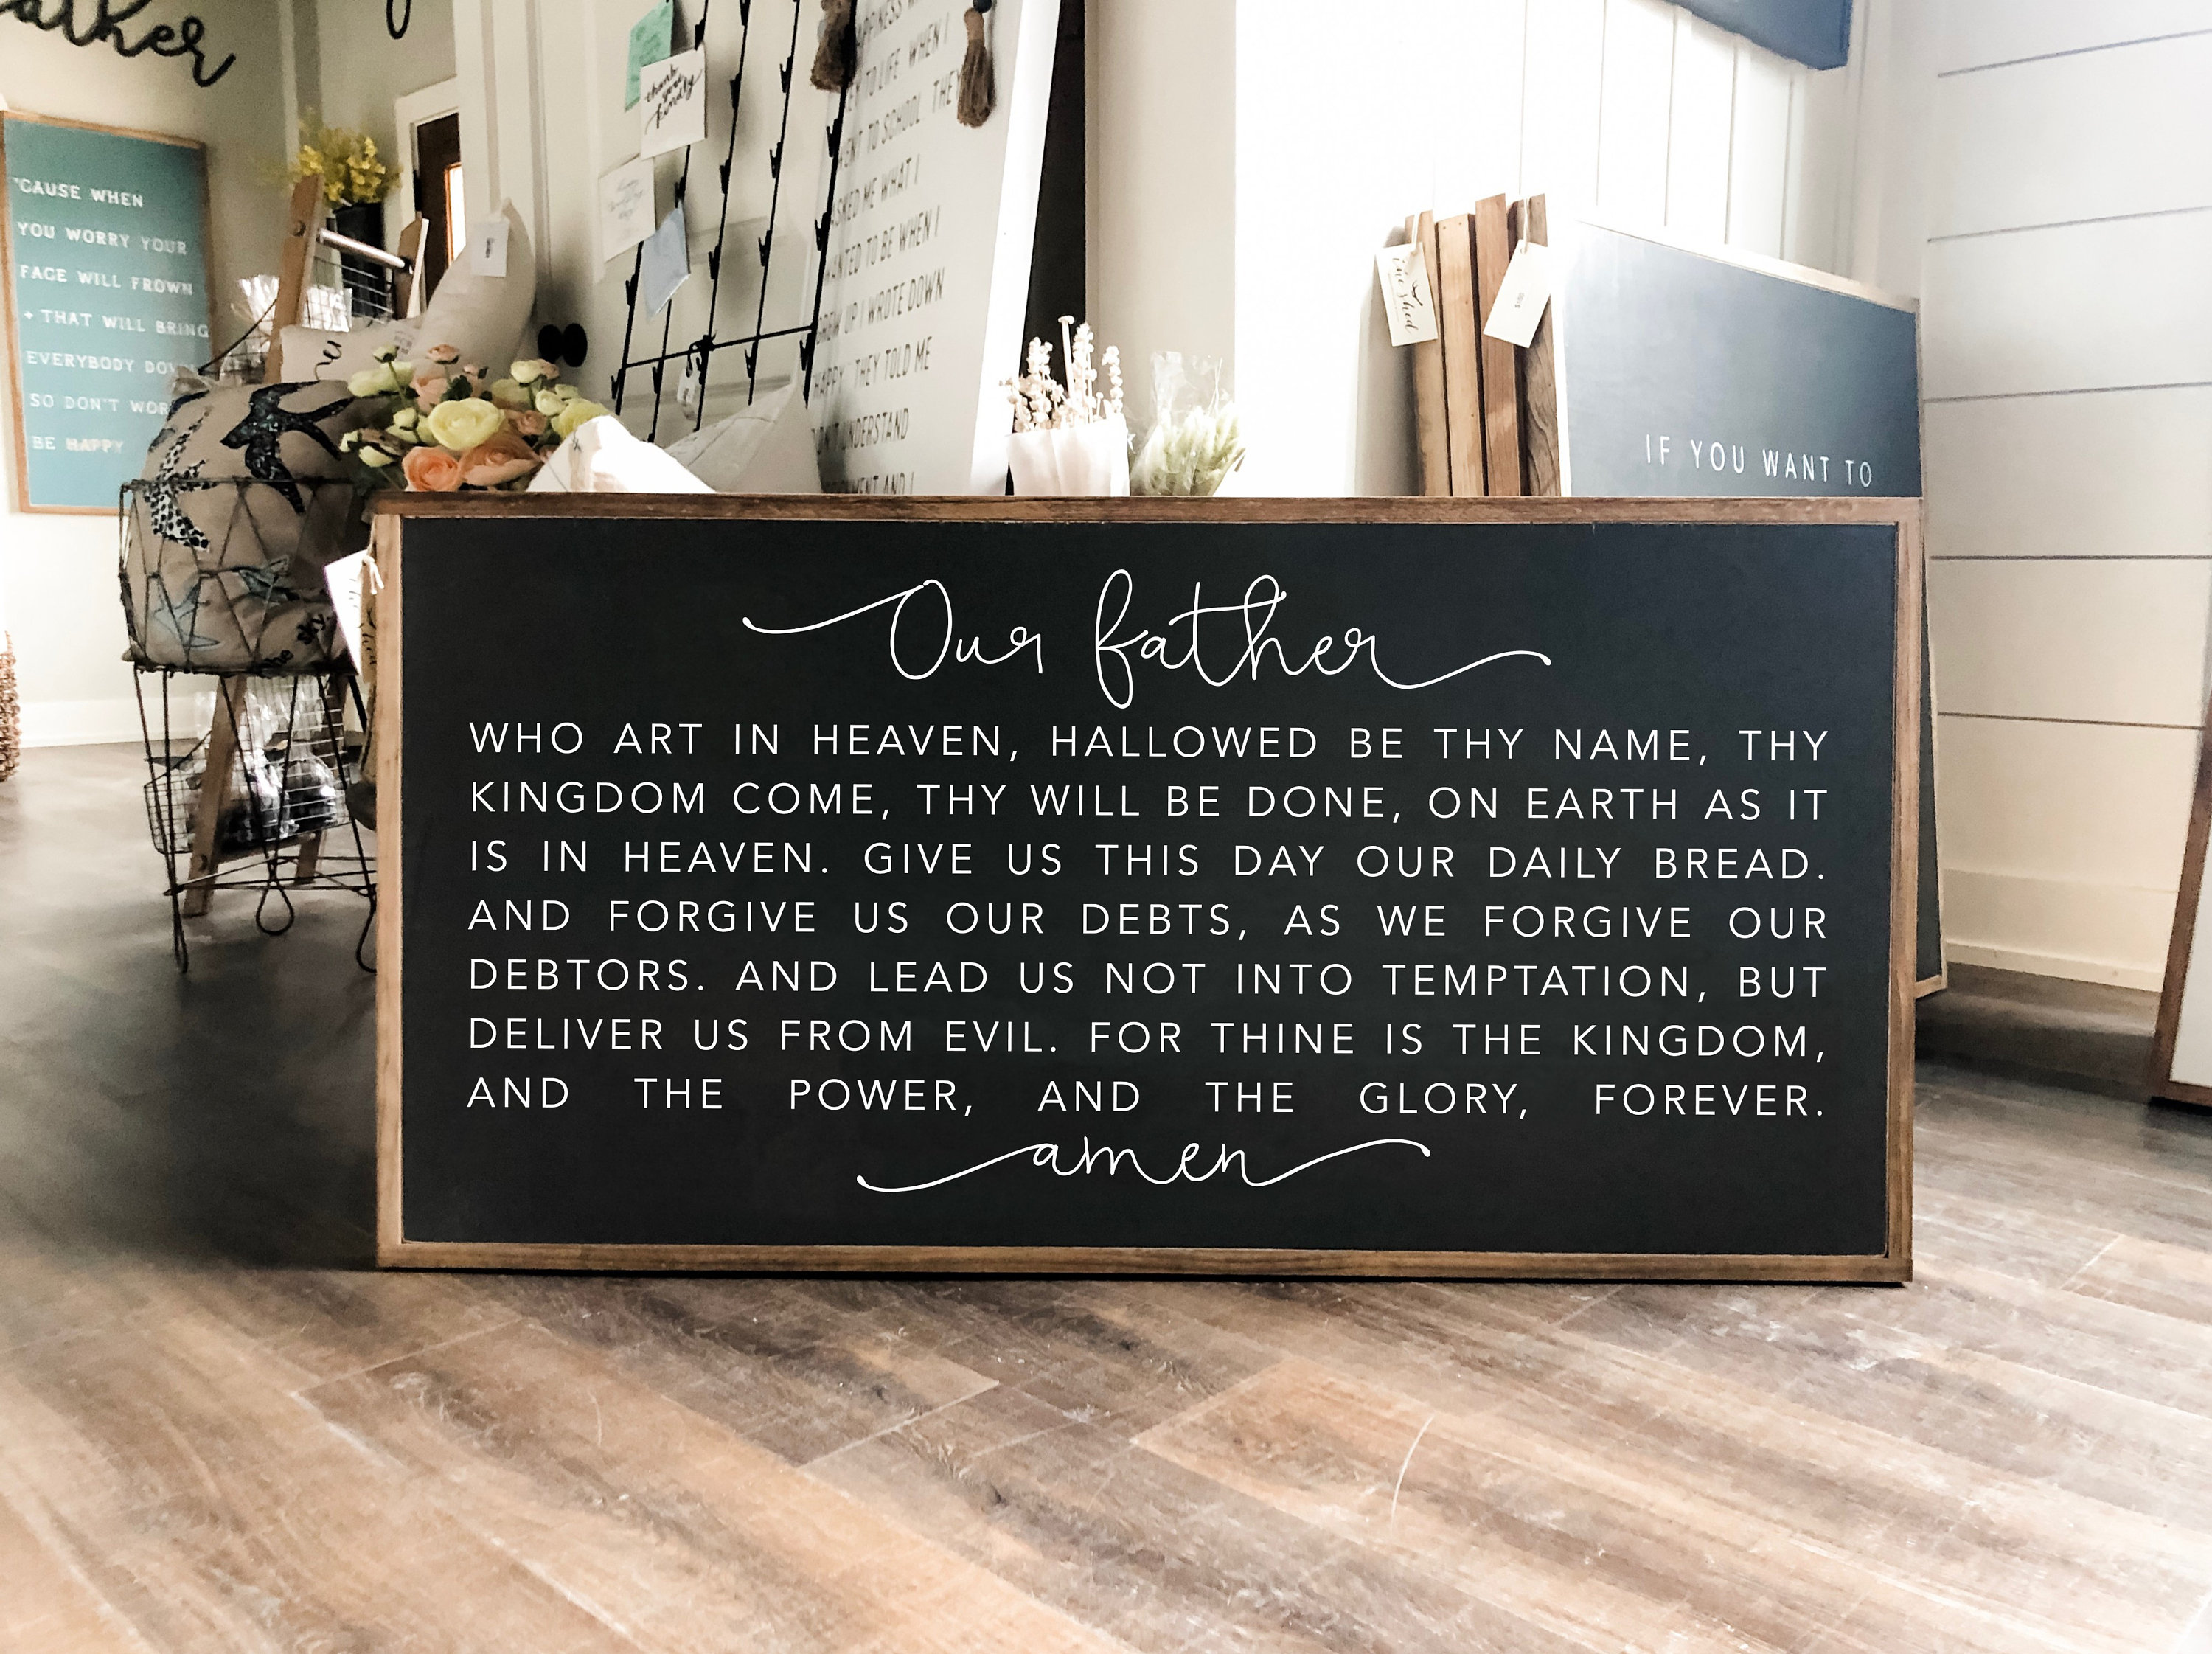 ather
'CAUSE WHEN
YOU WORRY YOUR
FACE WILL FROWN
+ THAT WILL BRING
EVERYBODY DOW
SO DON'T WOR
BE HAPPY
thank
you
kindly
TO LIFE WHEN I
WENT TO SCHOOL THEY
ASKED ME WHAT I
WANTED TO BE WHEN I
GREW UP I WROTE DOWN
"HAPPY" THEY TOLD ME
UNDERSTAND
MENT AND I
IF YOU WANT TO
Our father
WHO ART IN HEAVEN, HALLOWED BE THY NAME, THY
KINGDOM COME, THY WILL BE DONE, ON EARTH AS IT
IS IN HEAVEN. GIVE US THIS DAY OUR DAILY BREAD.
AND FORGIVE US OUR DEBTS, AS WE FORGIVE OUR
DEBTORS. AND LEAD US NOT INTO TEMPTATION, BUT
DELIVER US FROM EVIL. FOR THINE IS THE KINGDOM,
AND THE POWER, AND THE GLORY, FOREVER.
amen